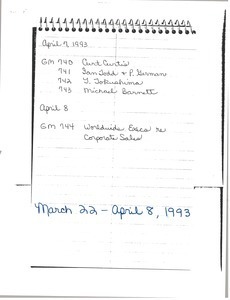 April 7, 1993
GM 740 Curt Curtis
741 Ian Todd & P. German
742 T. Tokushima
743 Michael Barnett
April 8
GM 744 Worldwide Execs re
Corporate Sales
March 22 - April 8, 1993